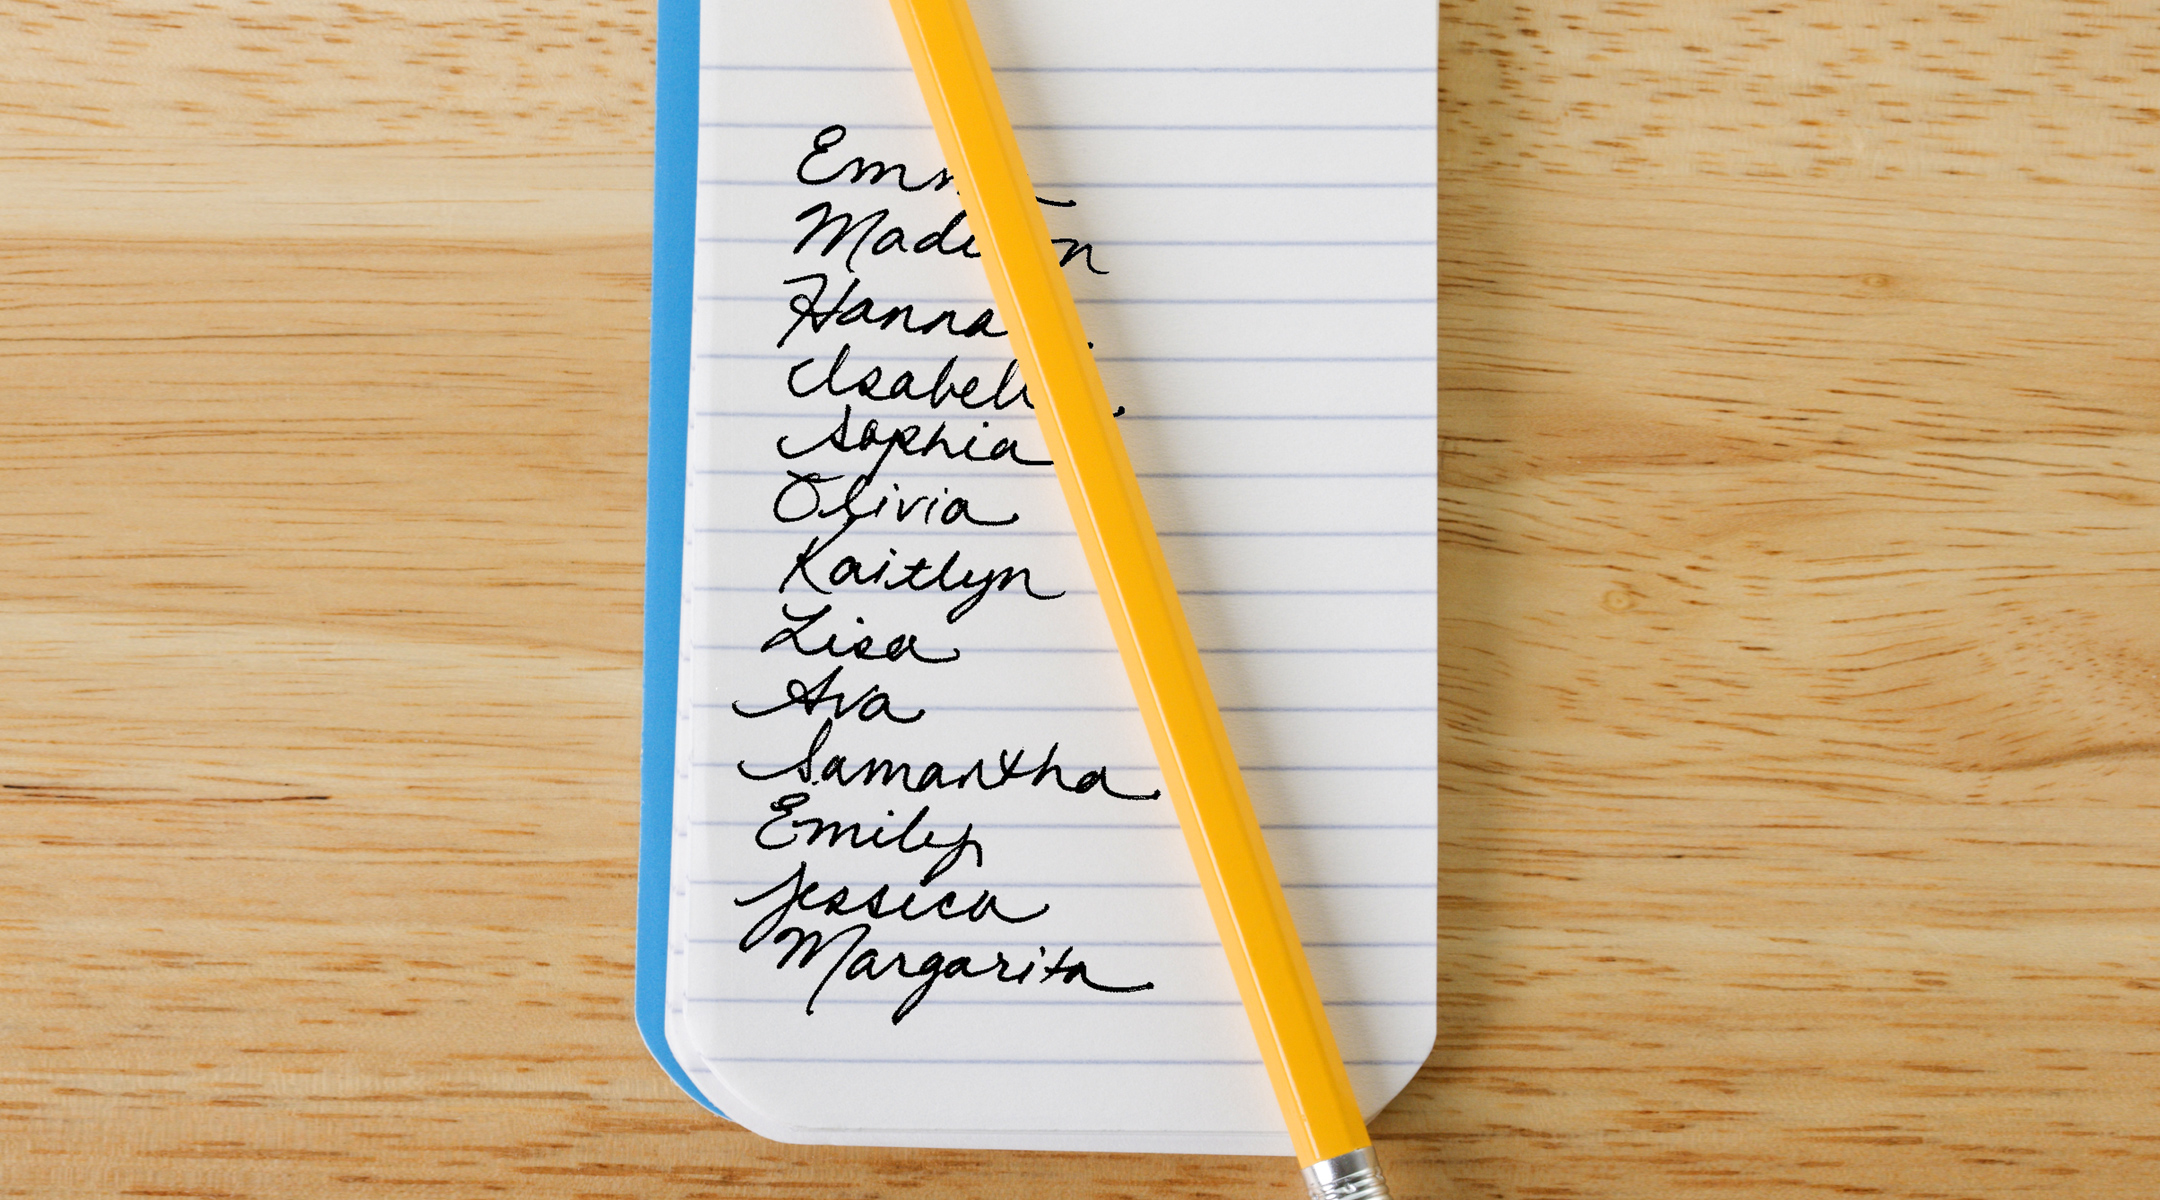 Emma
Madison
Hannah
Isabella
Sophia
Olivia
Kaitlyn
Lisa
Ava
Samantha
Emily
Jessica
Margarita